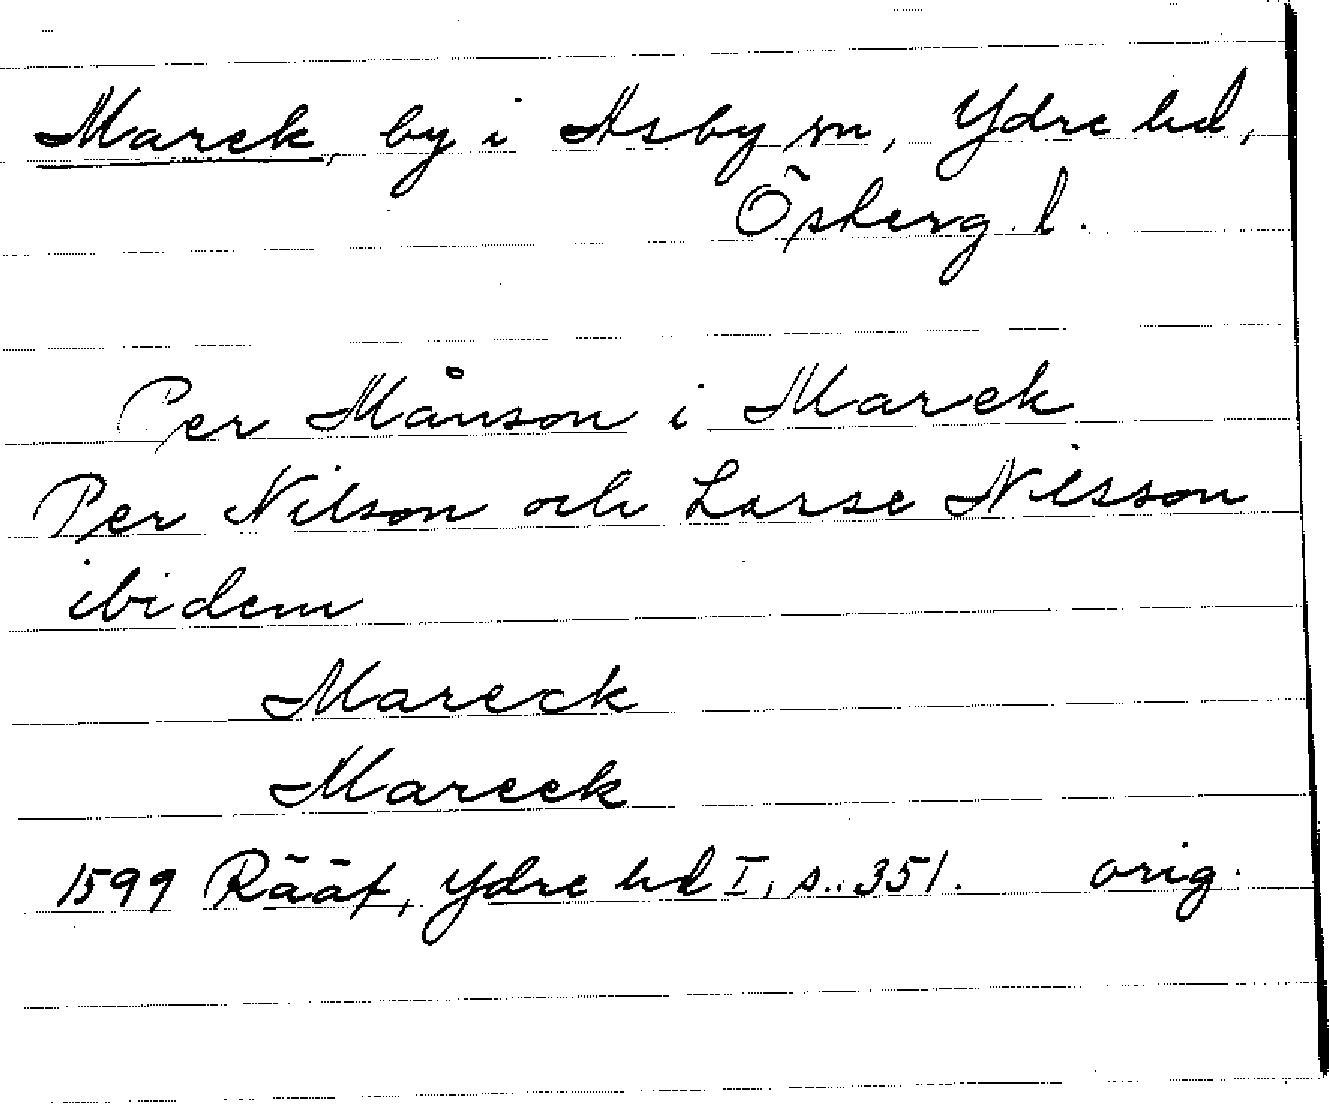 Marek, by i Asby sn, Ydre hd,
Österg. l.
Per Månson i Marek
Per Nilson och Larse Nilsson
ibidem
Mareck
Mareck
1599 Rääf, Ydre hd I, s. 351. orig.